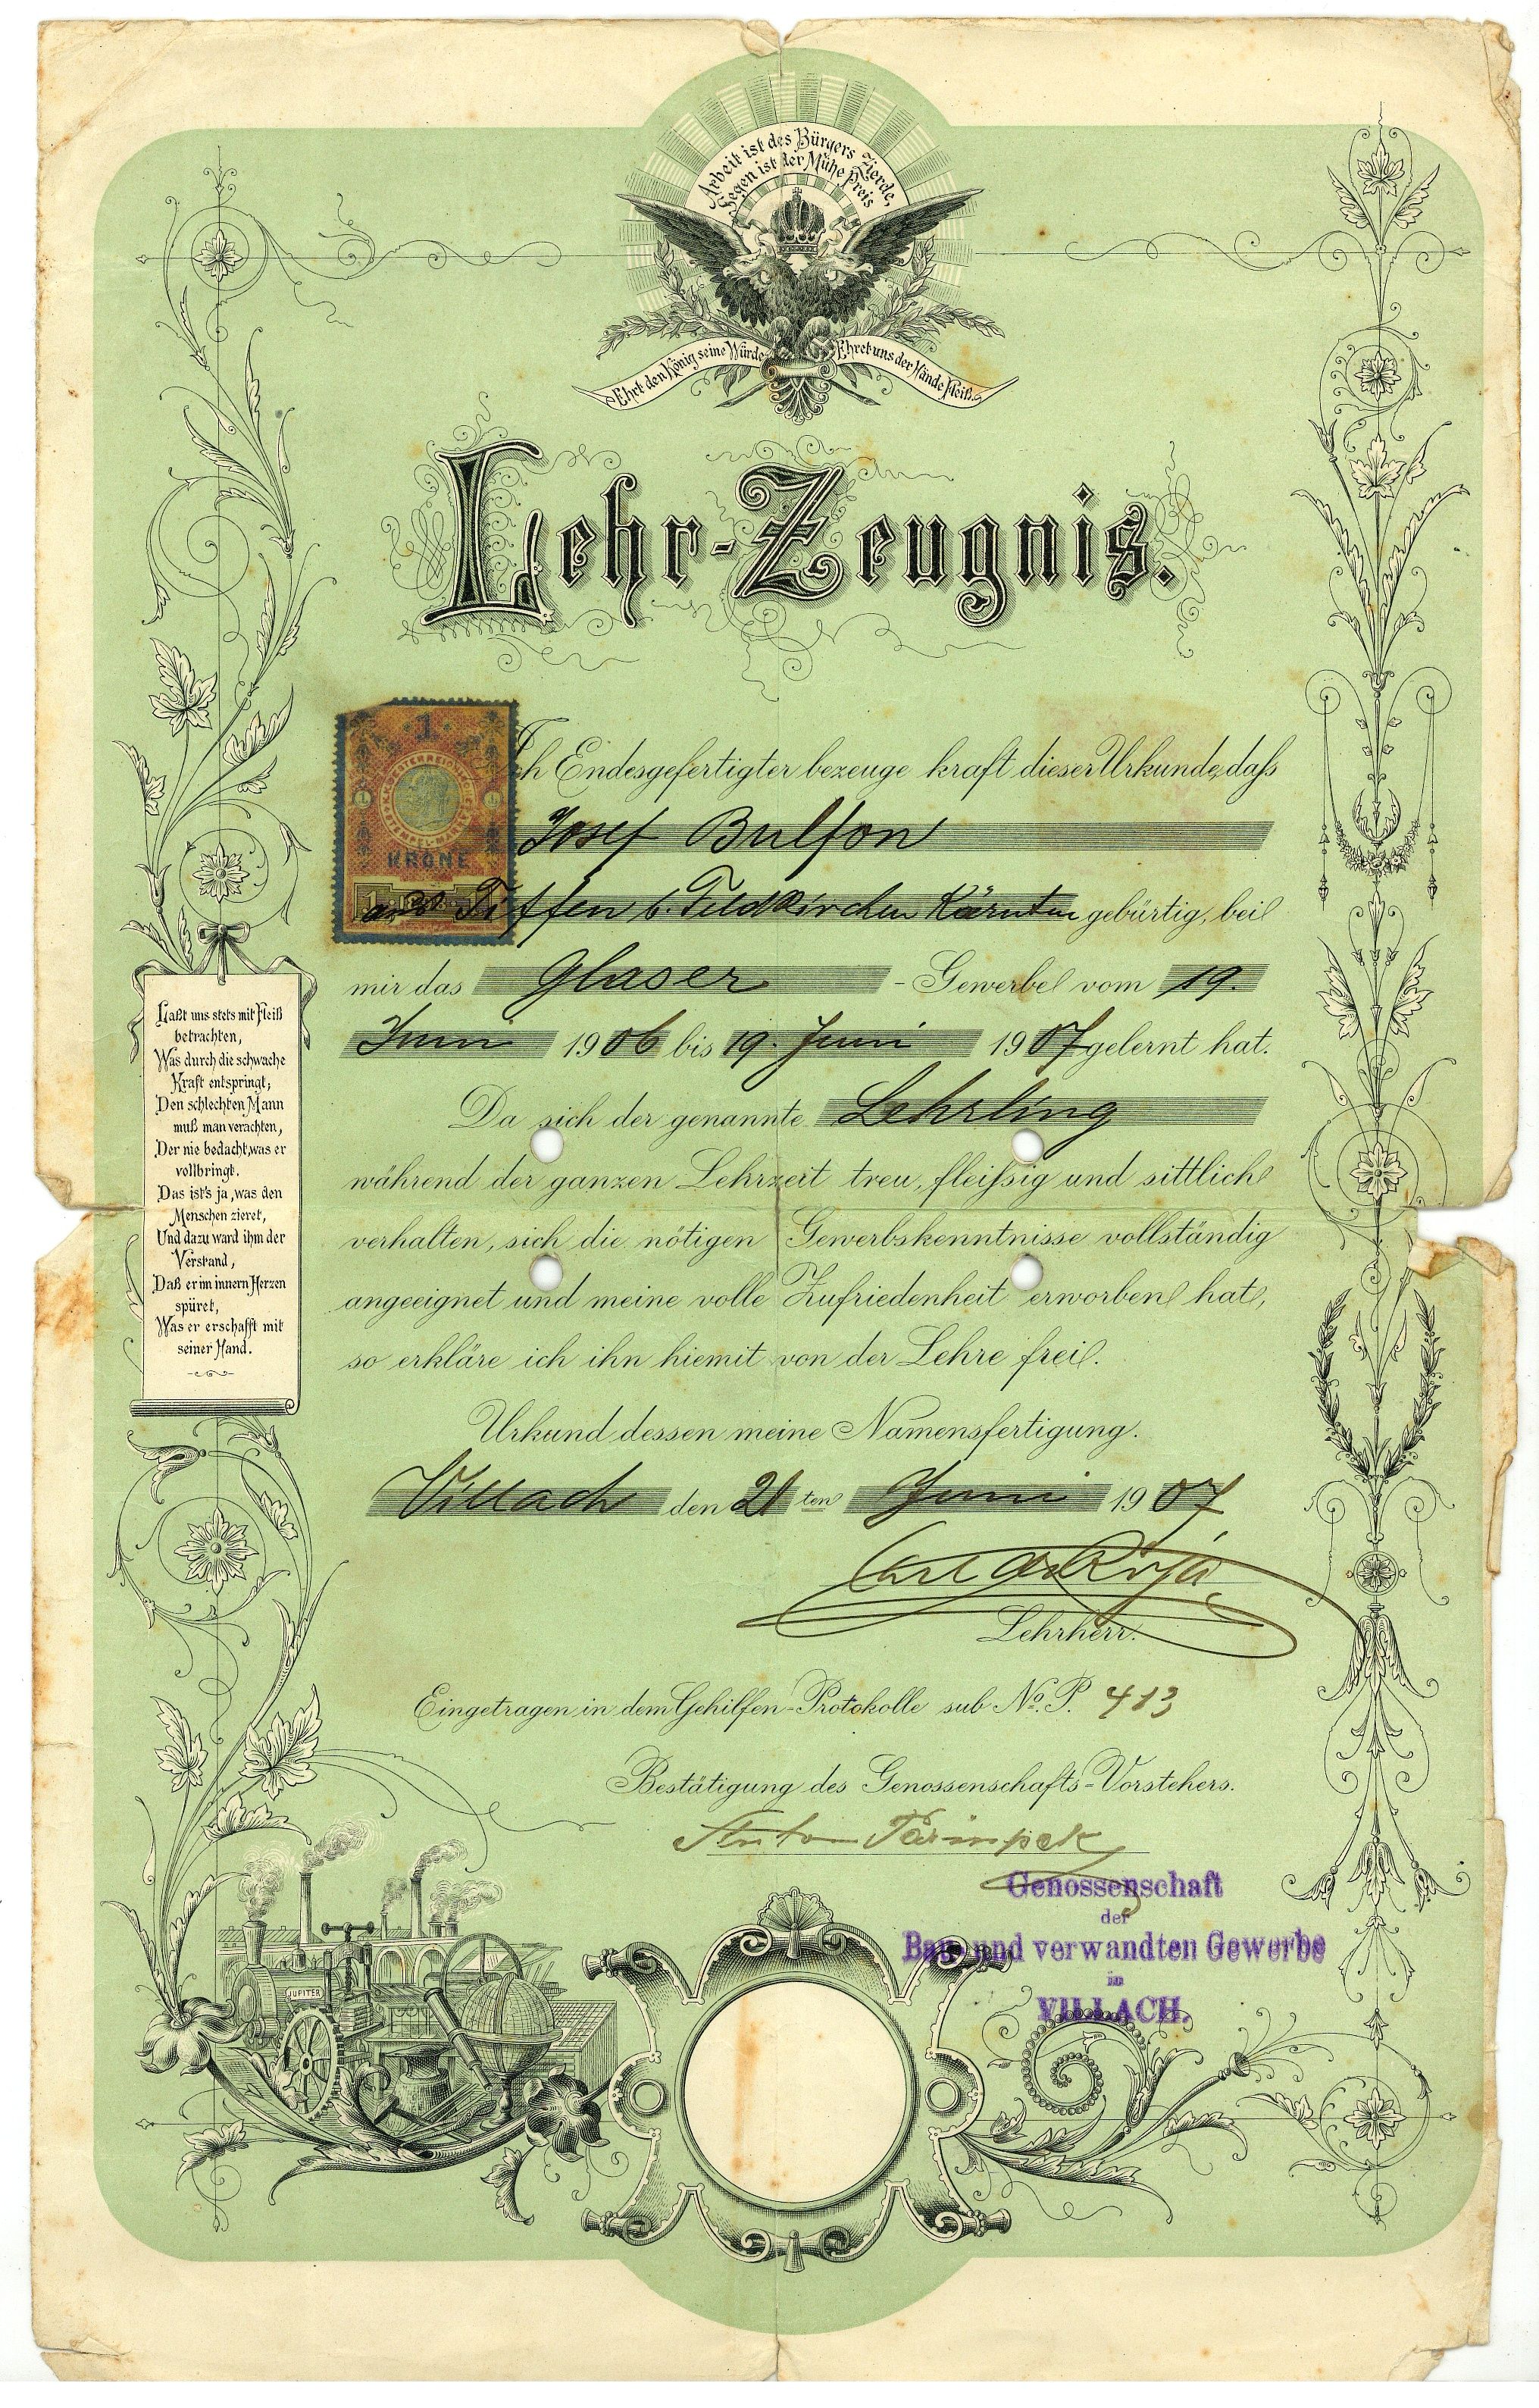 Arbeit ist des Bürgers Zierde,
Segen ist der Mühe Preis
Ehrt den König seine Würde
Ehret uns der Hände Fleiß.
Lehr-Zeugnis.
1
K.K. OESTERREICHISCHE
STEMPEL-MARKE
KRONE
Ich Endesgefertigter bezeuge kraft dieser Urkunde, dass
Josef Bulfon
aus Tiffen b. Feldkirchen Kärnten gebürtig, bei
mir das Glaser - Gewerbe vom 19.
Juni 1906 bis 19. Juni 1907 gelernt hat.
Da sich der genannte Lehrling
während der ganzen Lehrzeit treu, fleissig und sittlich
verhalten, sich die nötigen Gewerbskenntnisse vollständig
angeeignet und meine volle Zufriedenheit erworben hat,
so erkläre ich ihn hiemit von der Lehre frei.
Urkund dessen meine Namensfertigung.
Villach den 21 ten Juni 1907
Lehrherr.
Eingetragen in dem Gehilfen-Protokolle sub No. P. 413
Bestätigung des Genossenschafts-Vorstehers.
Anton
Genossenschaft
der
Bau und verwandten Gewerbe
in
VILLACH.
Laßt uns stets mit Fleiß
betrachten,
Was durch die schwache
Kraft entspringt;
Den schlechten Mann
muß man verachten,
Der nie bedacht, was er
vollbringt.
Das ist's ja, was den
Menschen zieret,
Und dazu ward ihm der
Verstand,
Daß er im innern Herzen
spüret,
Was er erschafft mit
seiner Hand.
JUPITER